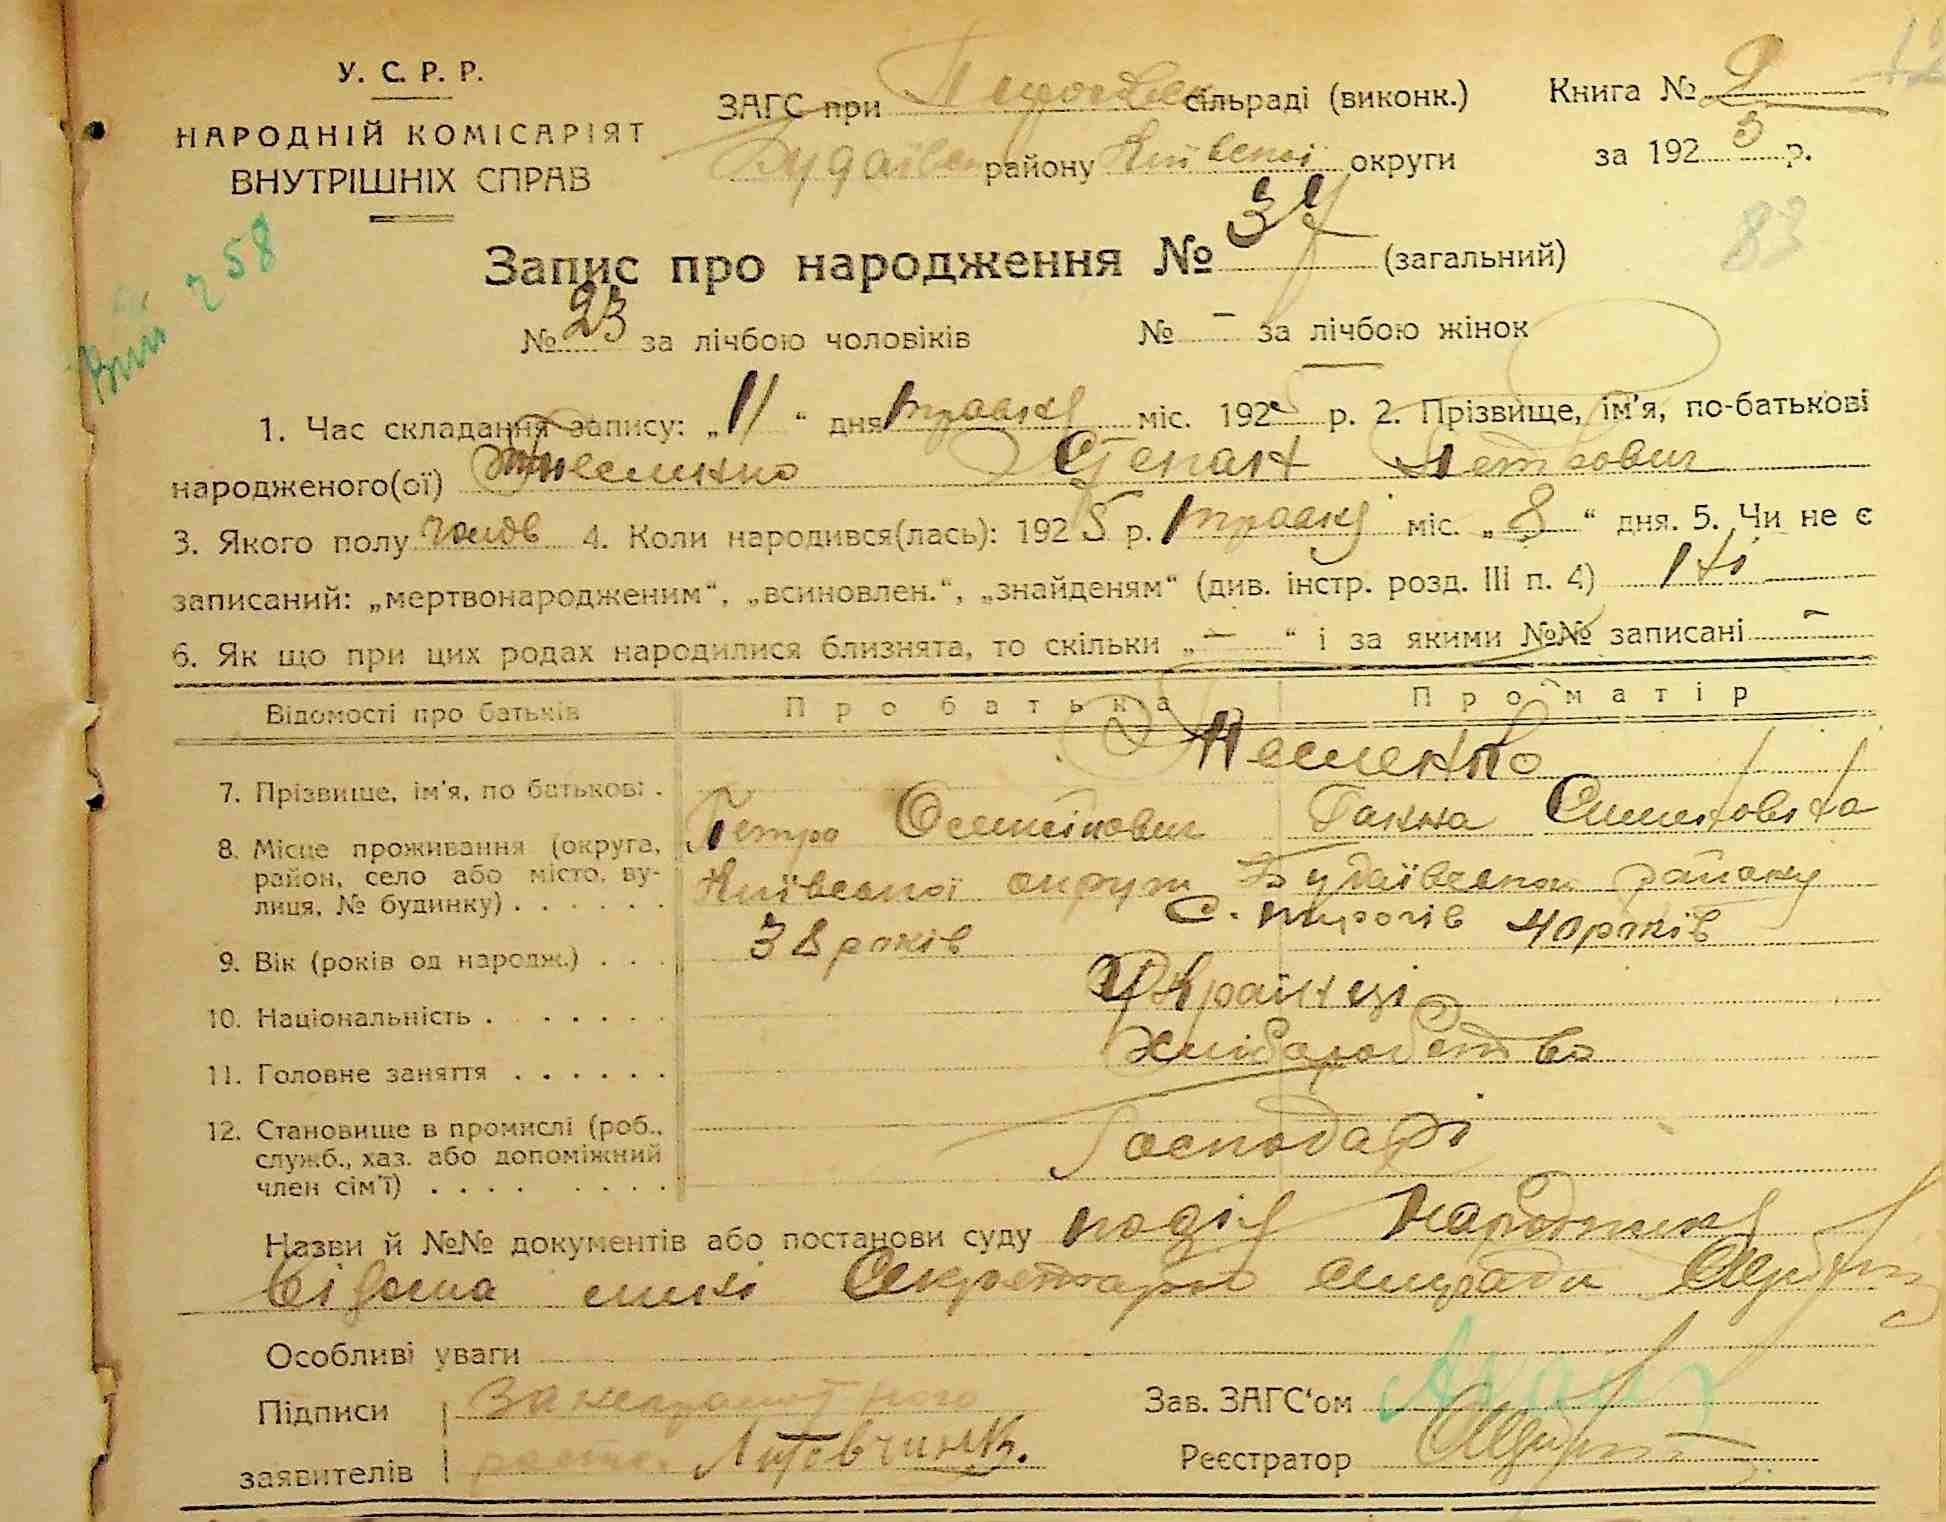 У. С. Р. Р.
НАРОДНІЙ КОМІСАРІЯТ
ВНУТРІШНІХ СПРАВ
ЗАГС при сільраді (виконк.)
района Київської округи
Книга № 2
за 1925 р.
83
258
Запис про народження № 37 (загальний)
№ 23 за лічбою чоловіків № – за лічбою жінок
1. Час складання запису: „11“ дня травня міс. 1925 р. 2. Прізвище, ім'я, по-батькові
народженого(ої) Степан Петрович
3. Якого полу чолов 4. Коли народився(лась): 1925 р. травня міс. „8“ дня. 5. Чи не є
записаний: „мертвонародженим“, „всиновлен.“, „знайденям“ (див. інстр. розд. III п. 4) Ні
6. Як що при цих родах народилися близнята, то скільки „–“ і за якими №№ записані –
Відомості про батьків Про батька Про матір
7. Прізвище, ім'я, по батькові . Несменко
Петро Ганна
8. Місце проживання (округа, район, село або місто, вулиця, № будинку) . . . . . . Київської округи Будаївського району
с. Пирогів
9. Вік (років од народж.) . . . 38 років 40 років
10. Національність . . . . . . . Українці
11. Головне заняття . . . . . . Хліборобство
12. Становище в промислі (роб., служб., хаз. або допоміжний член сім'ї) . . . . . . . . Господарі
Назви й №№ документів або постанови суду подія народження
відома мині Секретарю сільради
Особливі уваги
Підписи За неграмотного
заявителів Литовчинко.
Зав. ЗАГС'ом
Реєстратор